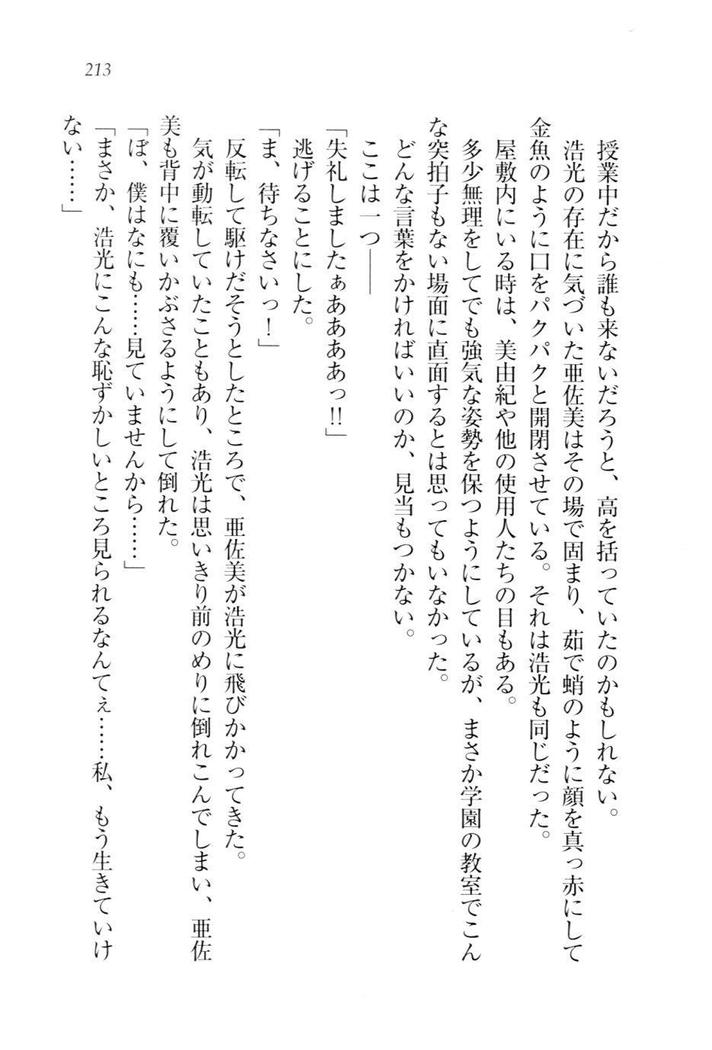 213
授業中だから誰も来ないだろうと、高を括っていたのかもしれない。
浩光の存在に気づいた亜佐美はその場で固まり、茹で蛸のように顔を真っ赤にして
金魚のように口をパクパクと開閉させている。それは浩光も同じだった。
屋敷内にいる時は、美由紀や他の使用人たちの目もある。
多少無理をしてでも強気な姿勢を保つようにしているが、まさか学園の教室でこん
な突拍子もない場面に直面するとは思ってもいなかった。
どんな言葉をかければいいのか、見当もつかない。
ここは一つ――
「失礼しましたぁああああっ!!」
逃げることにした。
「ま、待ちなさいっ！」
反転して駆けだそうとしたところで、亜佐美が浩光に飛びかかってきた。
気が動転していたこともあり、浩光は思いきり前のめりに倒れこんでしまい、亜佐
美も背中に覆いかぶさるようにして倒れた。
「ぼ、僕はなにも……見ていませんから……」
「まさか、浩光にこんな恥ずかしいところ見られるなんてぇ……私、もう生きていけ
ない……」